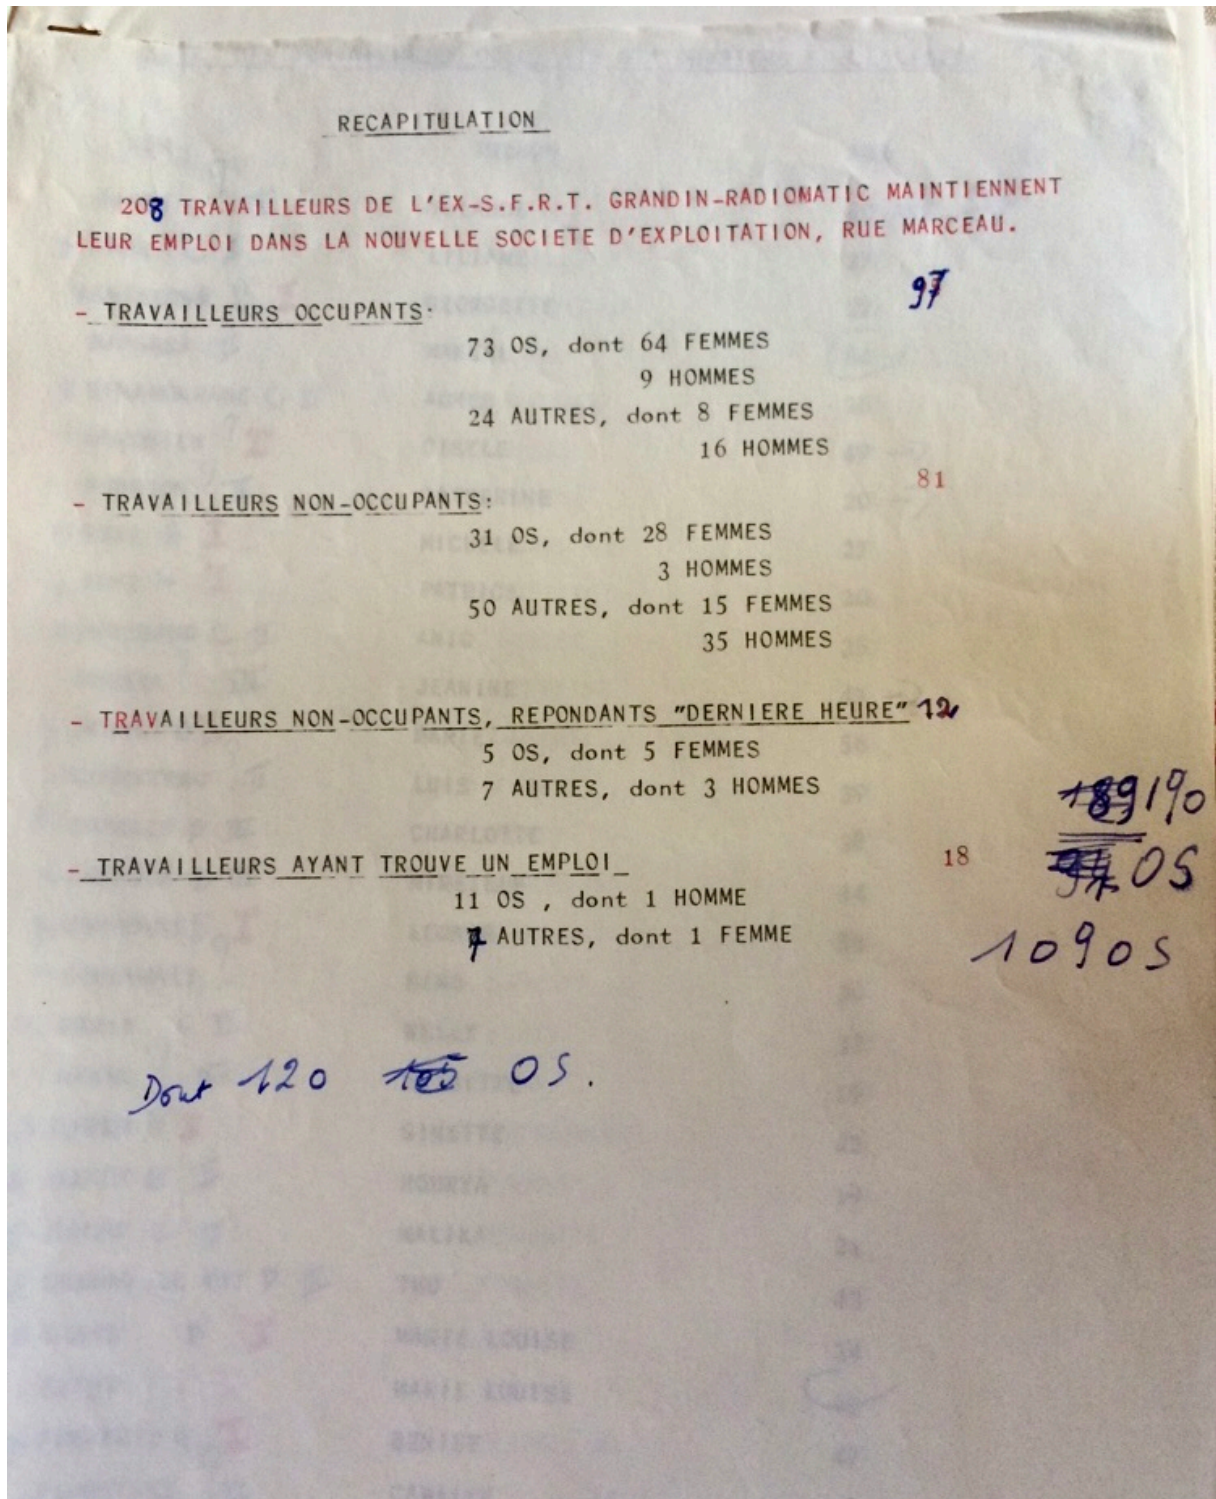 RECAPITULATION
208 TRAVAILLEURS DE L'EX-S.F.R.T. GRANDIN-RADIOMATIC MAINTIENNENT
LEUR EMPLOI DANS LA NOUVELLE SOCIETE D'EXPLOITATION, RUE MARCEAU.
- TRAVAILLEURS OCCUPANTS: 97
73 OS, dont 64 FEMMES
9 HOMMES
24 AUTRES, dont 8 FEMMES
16 HOMMES
- TRAVAILLEURS NON-OCCUPANTS: 81
31 OS, dont 28 FEMMES
3 HOMMES
50 AUTRES, dont 15 FEMMES
35 HOMMES
- TRAVAILLEURS NON-OCCUPANTS, REPONDANTS "DERNIERE HEURE" 12
5 OS, dont 5 FEMMES
7 AUTRES, dont 3 HOMMES
189 190
- TRAVAILLEURS AYANT TROUVE UN EMPLOI 18
OS
11 OS , dont 1 HOMME
7 AUTRES, dont 1 FEMME
109 OS
Dont 120 105 OS.